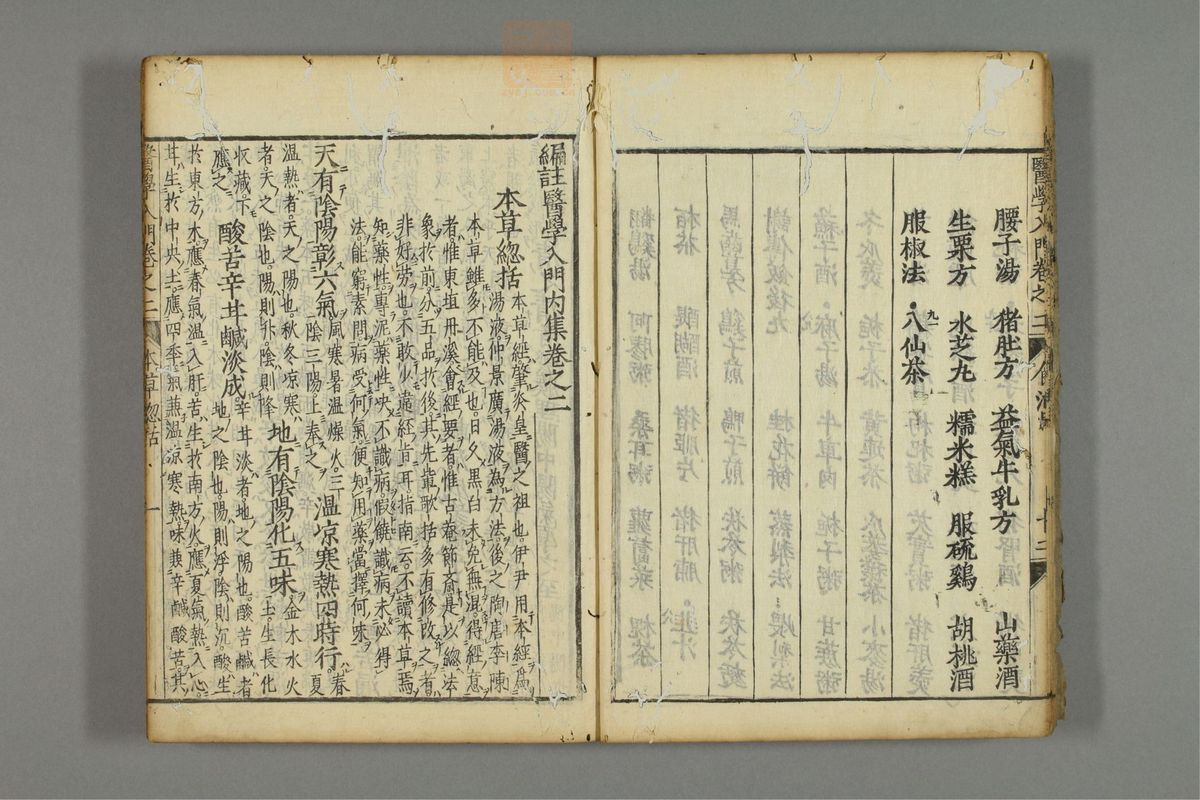 醫學入門卷之二 食治 十二
腰子湯 猪肚方 益氣牛乳方 山藥酒
生栗方 水芝丸 糯米糕 服硫鷄 胡桃酒
服椒法 八仙茶
編註醫學入門內集卷之二
本草總括
本草經肇炎皇醫之祖也伊尹用本經爲
湯液仲景廣湯液為方法後之陶唐李陳
本草雖多不能及也日久黑白未免無混得經意
者惟東垣丹溪會經要者惟古菴節齋是以總法
象於前分五品於後其先賢歌括多有修改之者
非好勞也不敢少違經旨耳指南云不讀本草焉
知藥性專泥藥性決不識病假饒識病未必得
法能窮素問病受何氣便知用藥當擇何味
天有陰陽彰六氣
風寒暑溫燥火三
陰三陽上奉之
溫凉寒熱四時行
春夏
溫熱者天之陽也秋冬凉寒金木水火
者天之陰也陽則升陰則降
地有陰陽化五味
土生長化
收藏下
應之
酸苦辛甘鹹淡成
辛甘淡者地之陽也酸苦鹹者
地之陰也陽則浮陰則沉酸生
於東方木應春氣溫入肝苦生於南方火應夏氣熱入心
甘生於中央土應四季氣兼溫凉寒熱味兼辛鹹酸苦其
醫學入門卷之二 本草總括 一